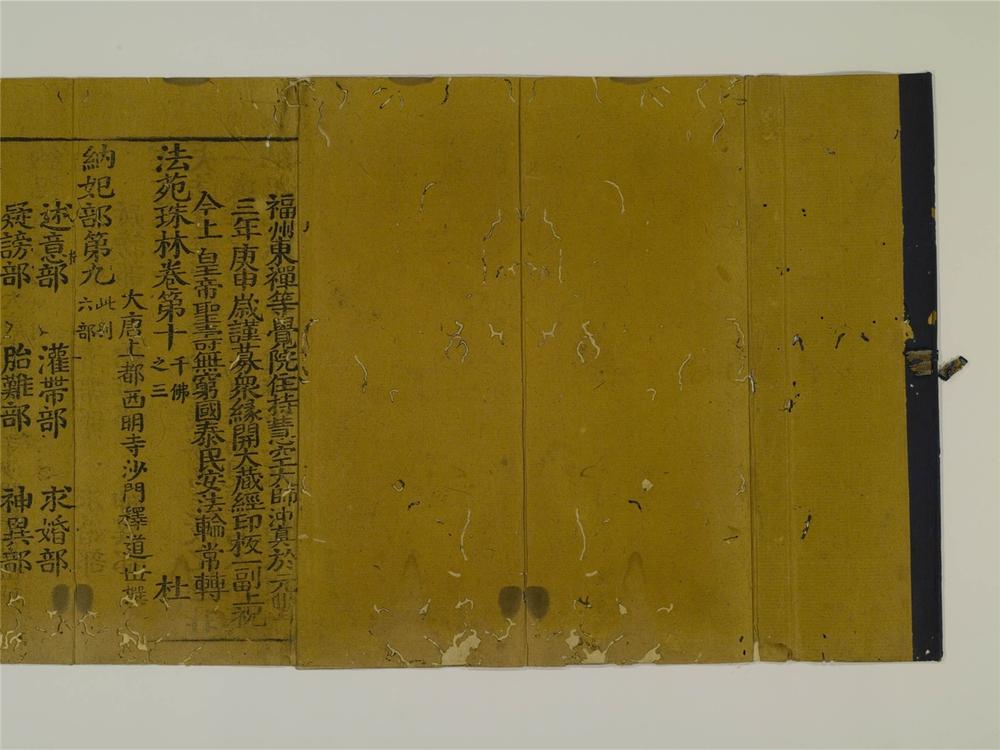 福州東禪等覺院住持慧空大師沖真於元豐
三年庚申歲謹募衆緣開大藏經印板一副上祝
今上 皇帝聖壽無窮國泰民安法輪常轉
法苑珠林卷第十 千佛之三 杜
大唐上都西明寺沙門釋道世撰
納妃部第九 此別六部
述意部 灌帶部 求婚部
疑謗部 胎難部 神異部